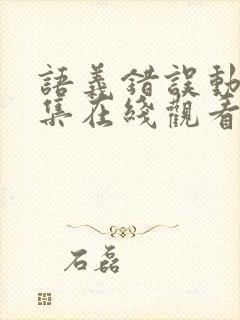 語義錯誤動
集在綫觀看
石磊